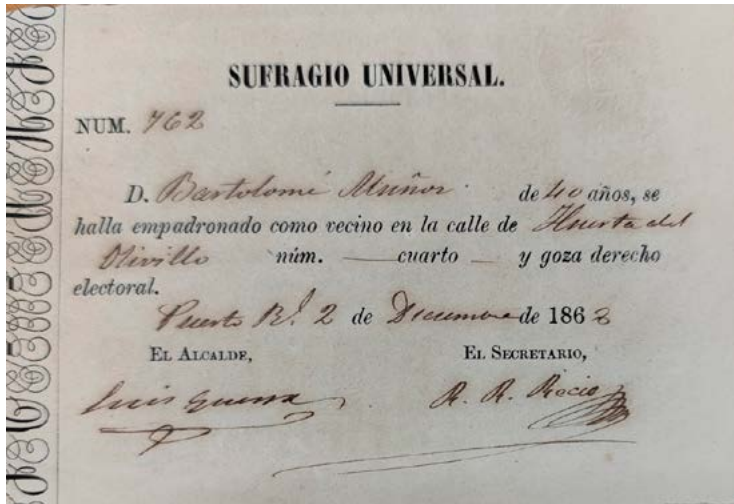 SUFRAGIO UNIVERSAL.
NUM. 762
D. Bartolomé Muñoz de 40 años, se
halla empadronado como vecino en la calle de Huerta del
Olivillo núm. — cuarto — y goza derecho
electoral.
Puerto Rl. 2 de Diciembre de 1868
EL ALCALDE, EL SECRETARIO,
Luis Guerra R. R. Rocio